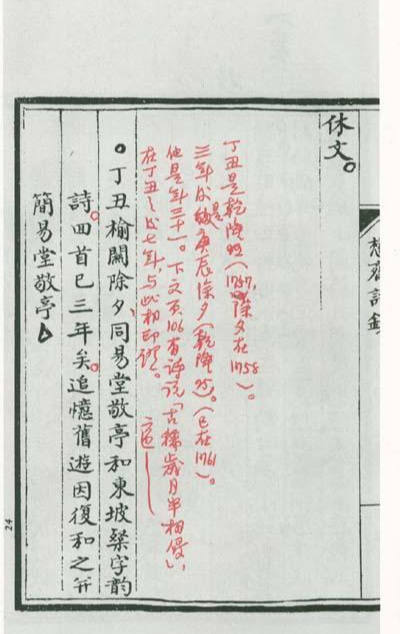 休文。
丁丑是乾隆22(1757,除夕在1758)。
三年後是庚辰除夕(乾隆25)。(已在1761)
他是年三十一。下文頁106有詩說「古稀歲月半相侵」,
在丁丑之後七年,與此相印證。
。丁丑榆關除夕、同易堂敬亭和東坡粲字韵
詩。四首已三年矣。追憶舊遊因復和之并
簡易堂敬亭
懋齋詩鈔
24